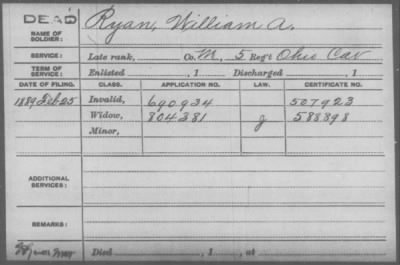 DEAD
NAME OF SOLDIER: Ryan, William A.
SERVICE: Late rank, Co. M, 5 Reg't Ohio Cav
TERM OF SERVICE: Enlisted , 1 Discharged , 1
DATE OF FILING. CLASS. APPLICATION NO. LAW. CERTIFICATE NO.
1889 Feb 25 Invalid, 690934 507923
Widow, 804381 g 588898
Minor,
ADDITIONAL SERVICES:
REMARKS:
Died , 1 , at